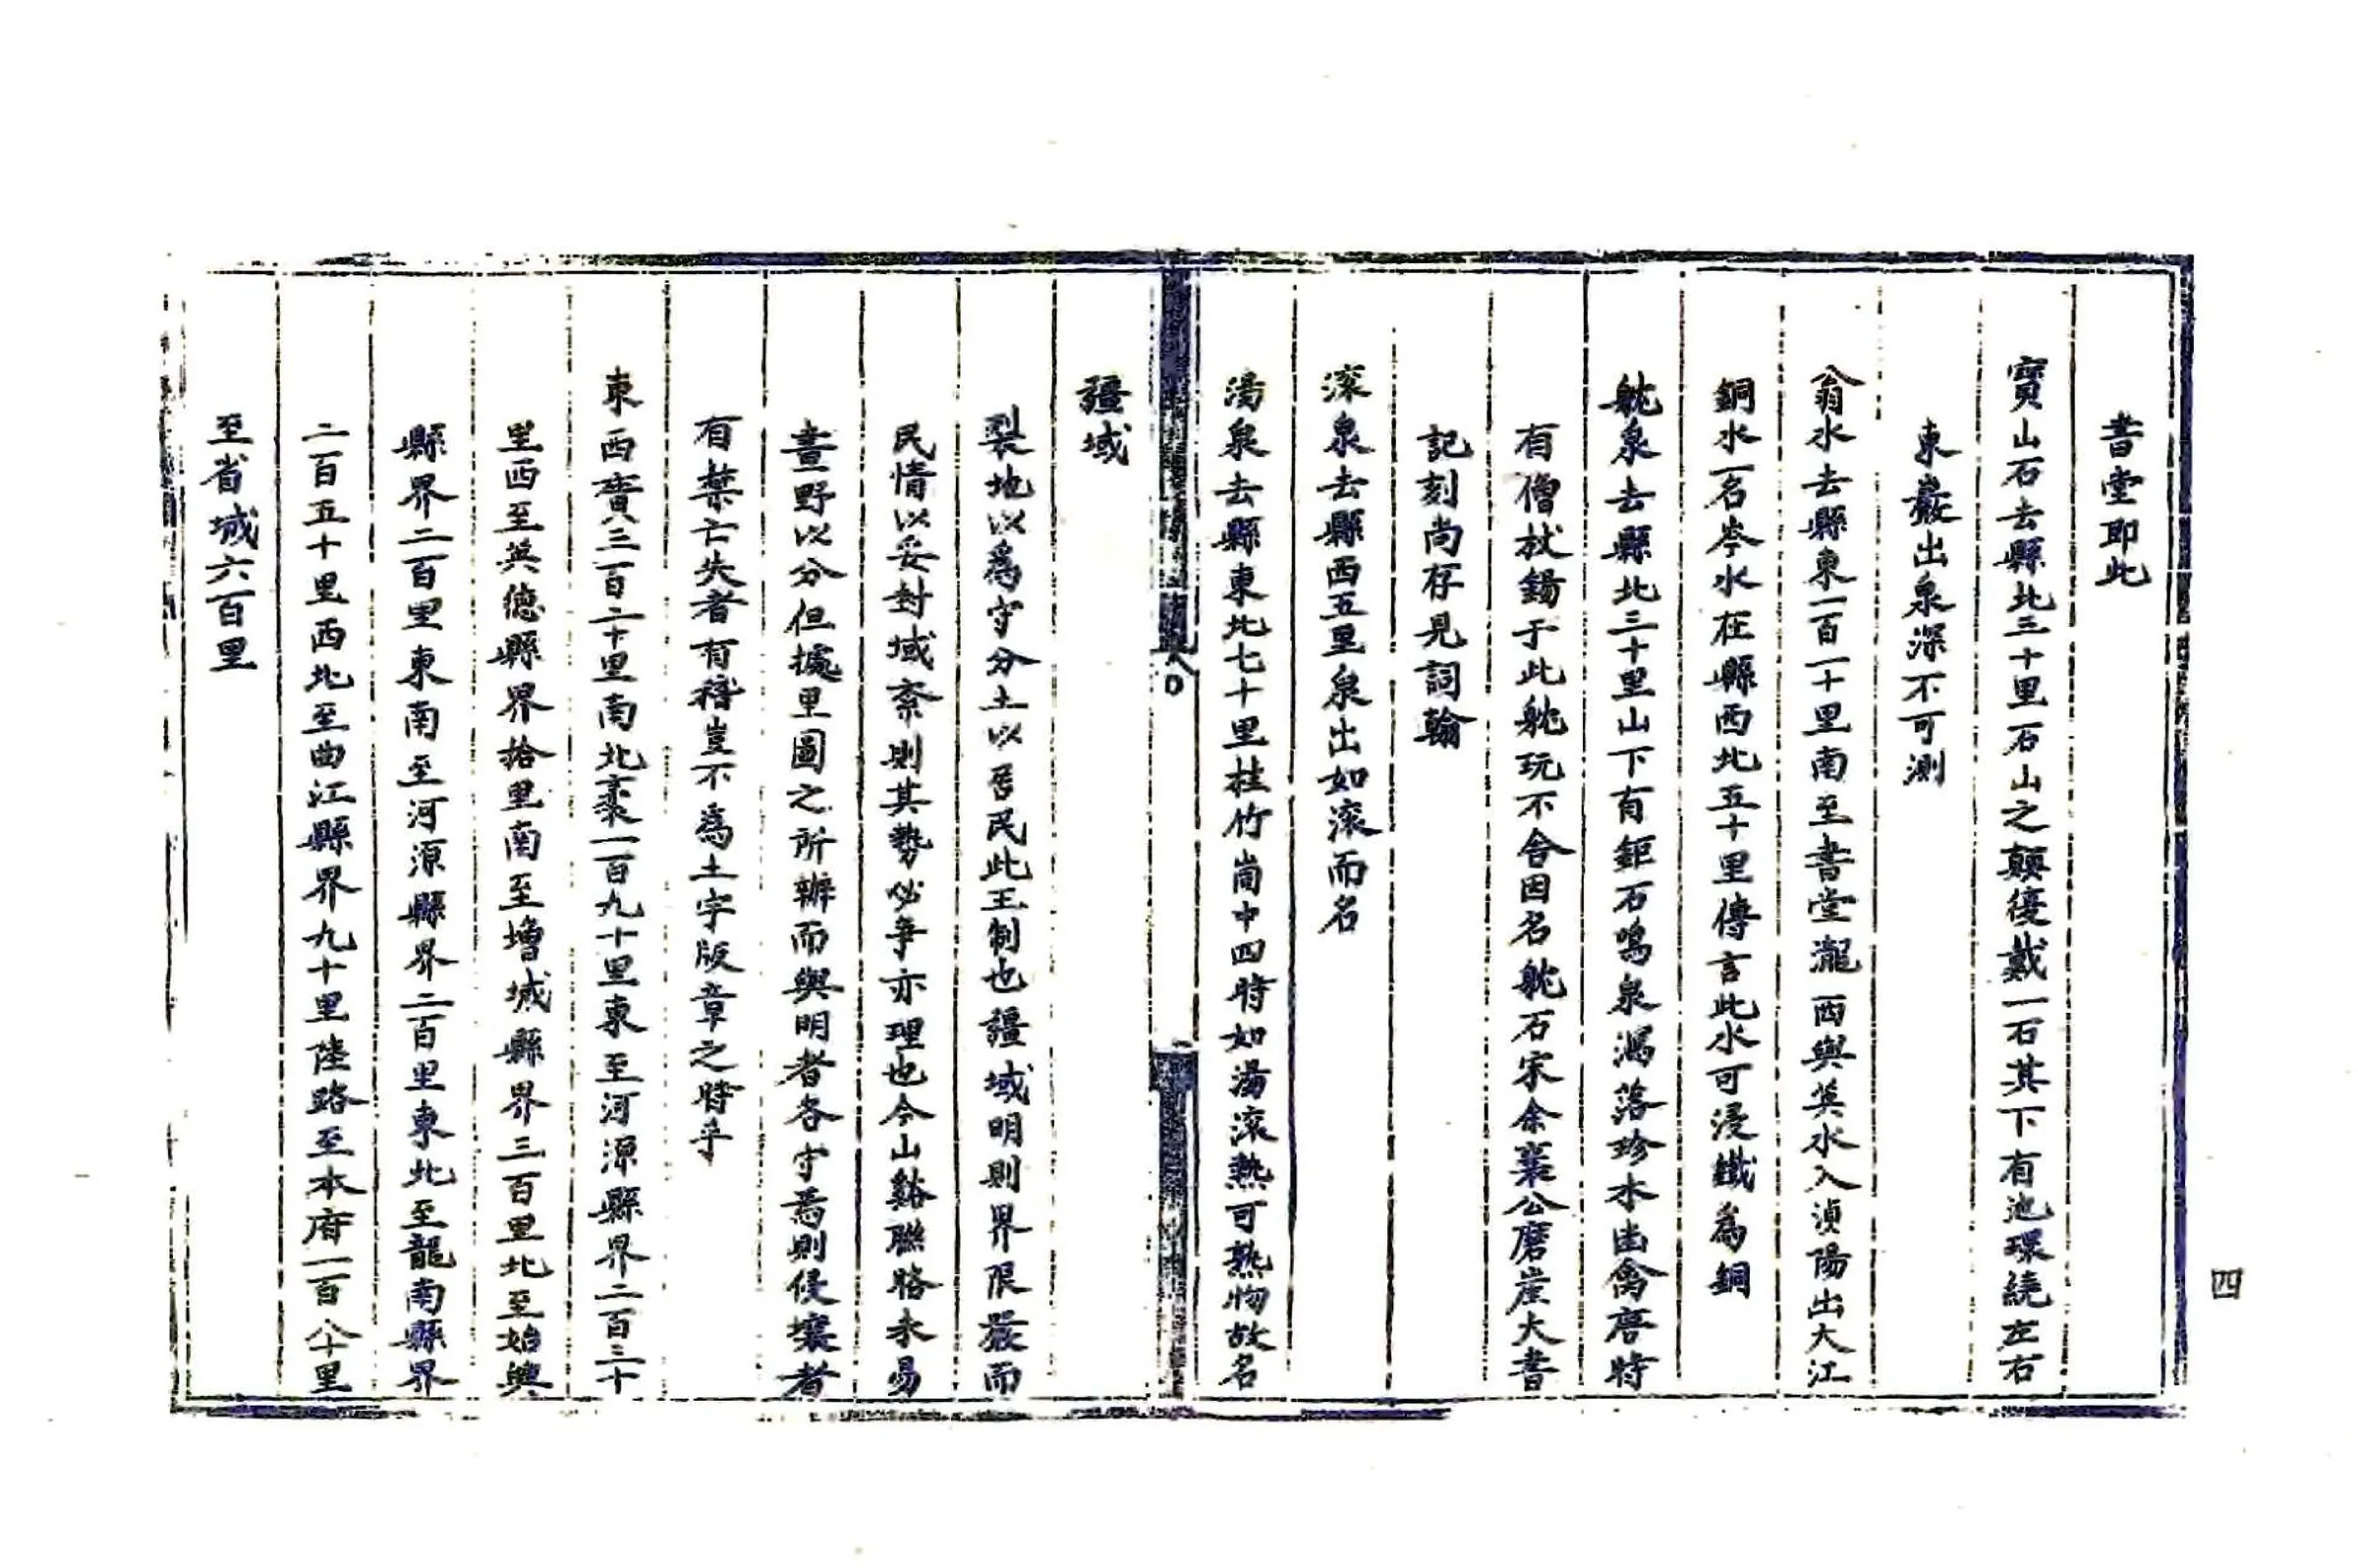 書堂即此
寶山石去縣北三十里石山之顛復戴一石其下有池環繞左右
東巖出泉深不可測
翁水去縣東一百一十里南至書堂瀧西與英水入湞陽出大江
銅水一名岑水在縣西北五十里傳言此水可浸鐵為銅
躭泉去縣北三十里山下有鉅石鳴泉瀉落珍木幽禽唐特
有僧杖錫于此躭玩不舍因名躭石宋余襄公磨崖大書
記刻尚存見詞翰
滚泉去縣西五里泉出如滚而名
湯泉去縣東北七十里桂竹崗中四時如湯滚熱可熟物故名
疆域
裂地以為守分土以居民此王制也疆域明則界限嚴而
民情以妥封域紊則其勢必爭亦理也今山谿聯賂未易
畫野以分但據里圖之所辦而與明者各守焉則侵壤者
有禁亡失者有稽豈不為土宇版章之時乎
東西廣八三百二十里南北袤一百九十里東至河源縣界二百二十
里西至英德縣界拾里南至增城縣界三百里北至始興
縣界二百里東南至河源縣界二百里東北至龍南縣界
二百五十里西北至曲江縣界九十里陸路至本府一百八十里
至省城六百里
四